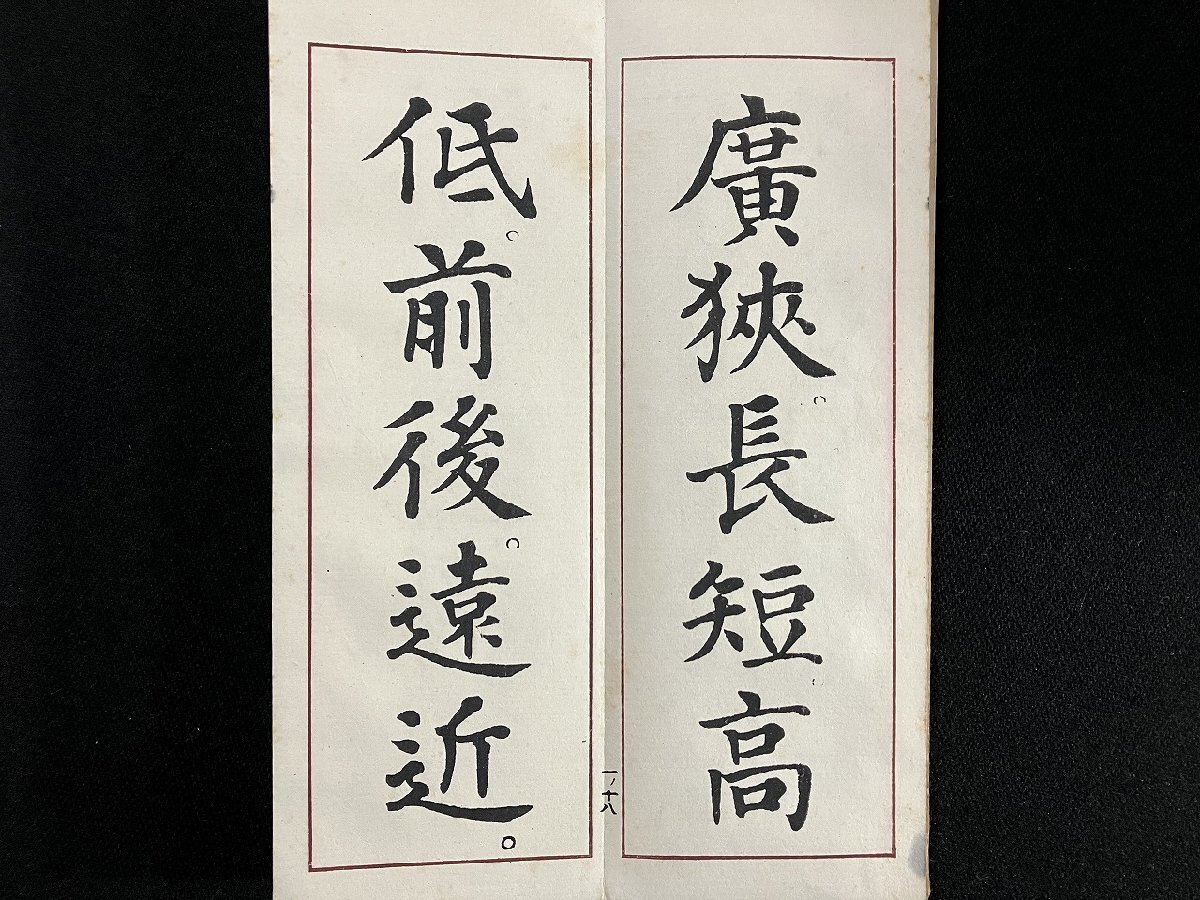 廣狹。長短。高
低。前後。遠近。
一ノ十八